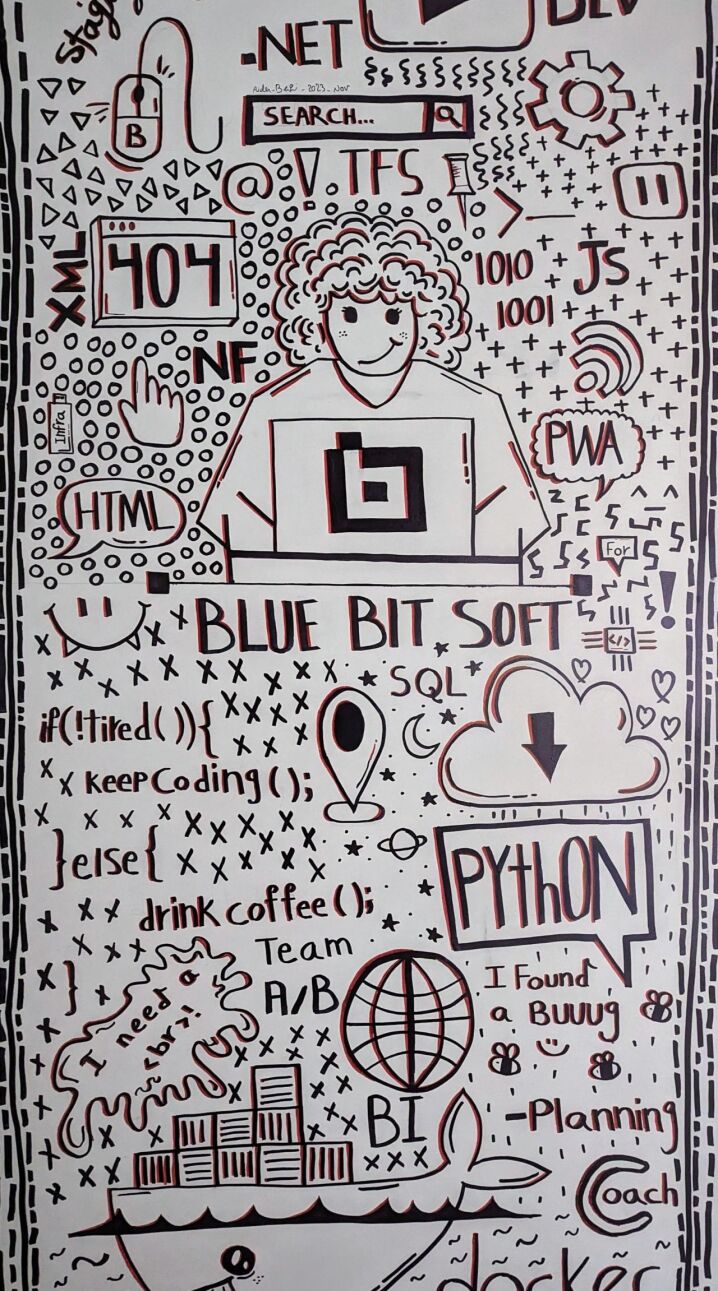 .NET
B
2023 - Nov
SEARCH...
@ ! .TFS
>_
XML
404
1010
1001
JS
NF
Infra
PWA
HTML
b
For
!
BLUE BIT SOFT
</>
SQL
if(!tired()){
keepCoding();
}else{
drink coffee();
}
PYthON
Team
A/B
I need a
<br>!
I Found
a BUUUg
BI
-Planning
Coach
docker